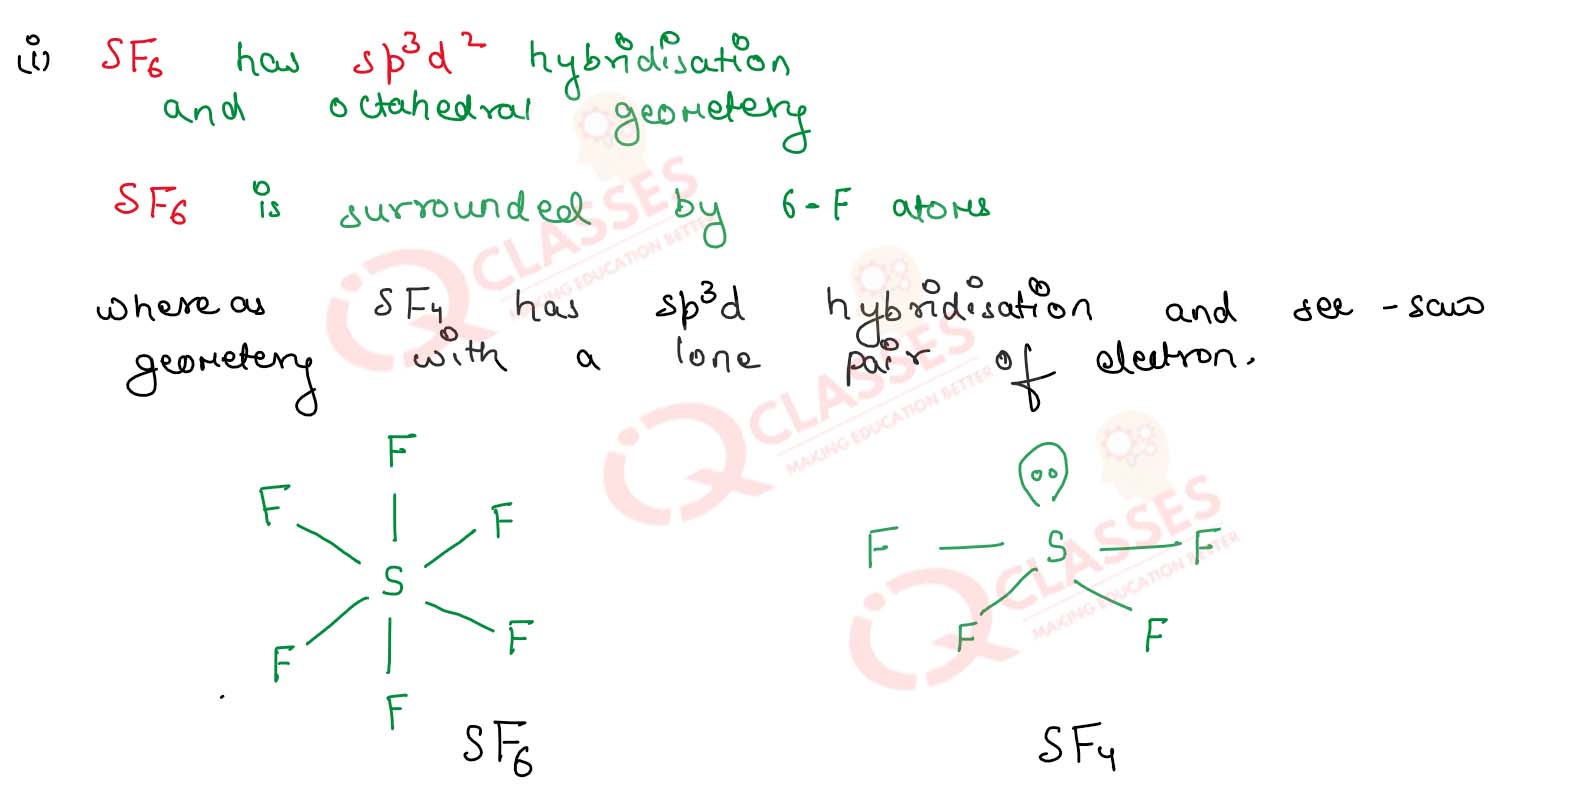 (i) SF6 has sp³d² hybridisation
and octahedral geometery
SF6 is surrounded by 6-F atoms
where as SF4 has sp³d hybridisation and see-saw
geometery with a lone pair of electron.
F
F F
S
F F
F
SF6
F S F
F F
SF4
iQ CLASSES
MAKING EDUCATION BETTER
iQ CLASSES
MAKING EDUCATION BETTER
iQ CLASSES
MAKING EDUCATION BETTER